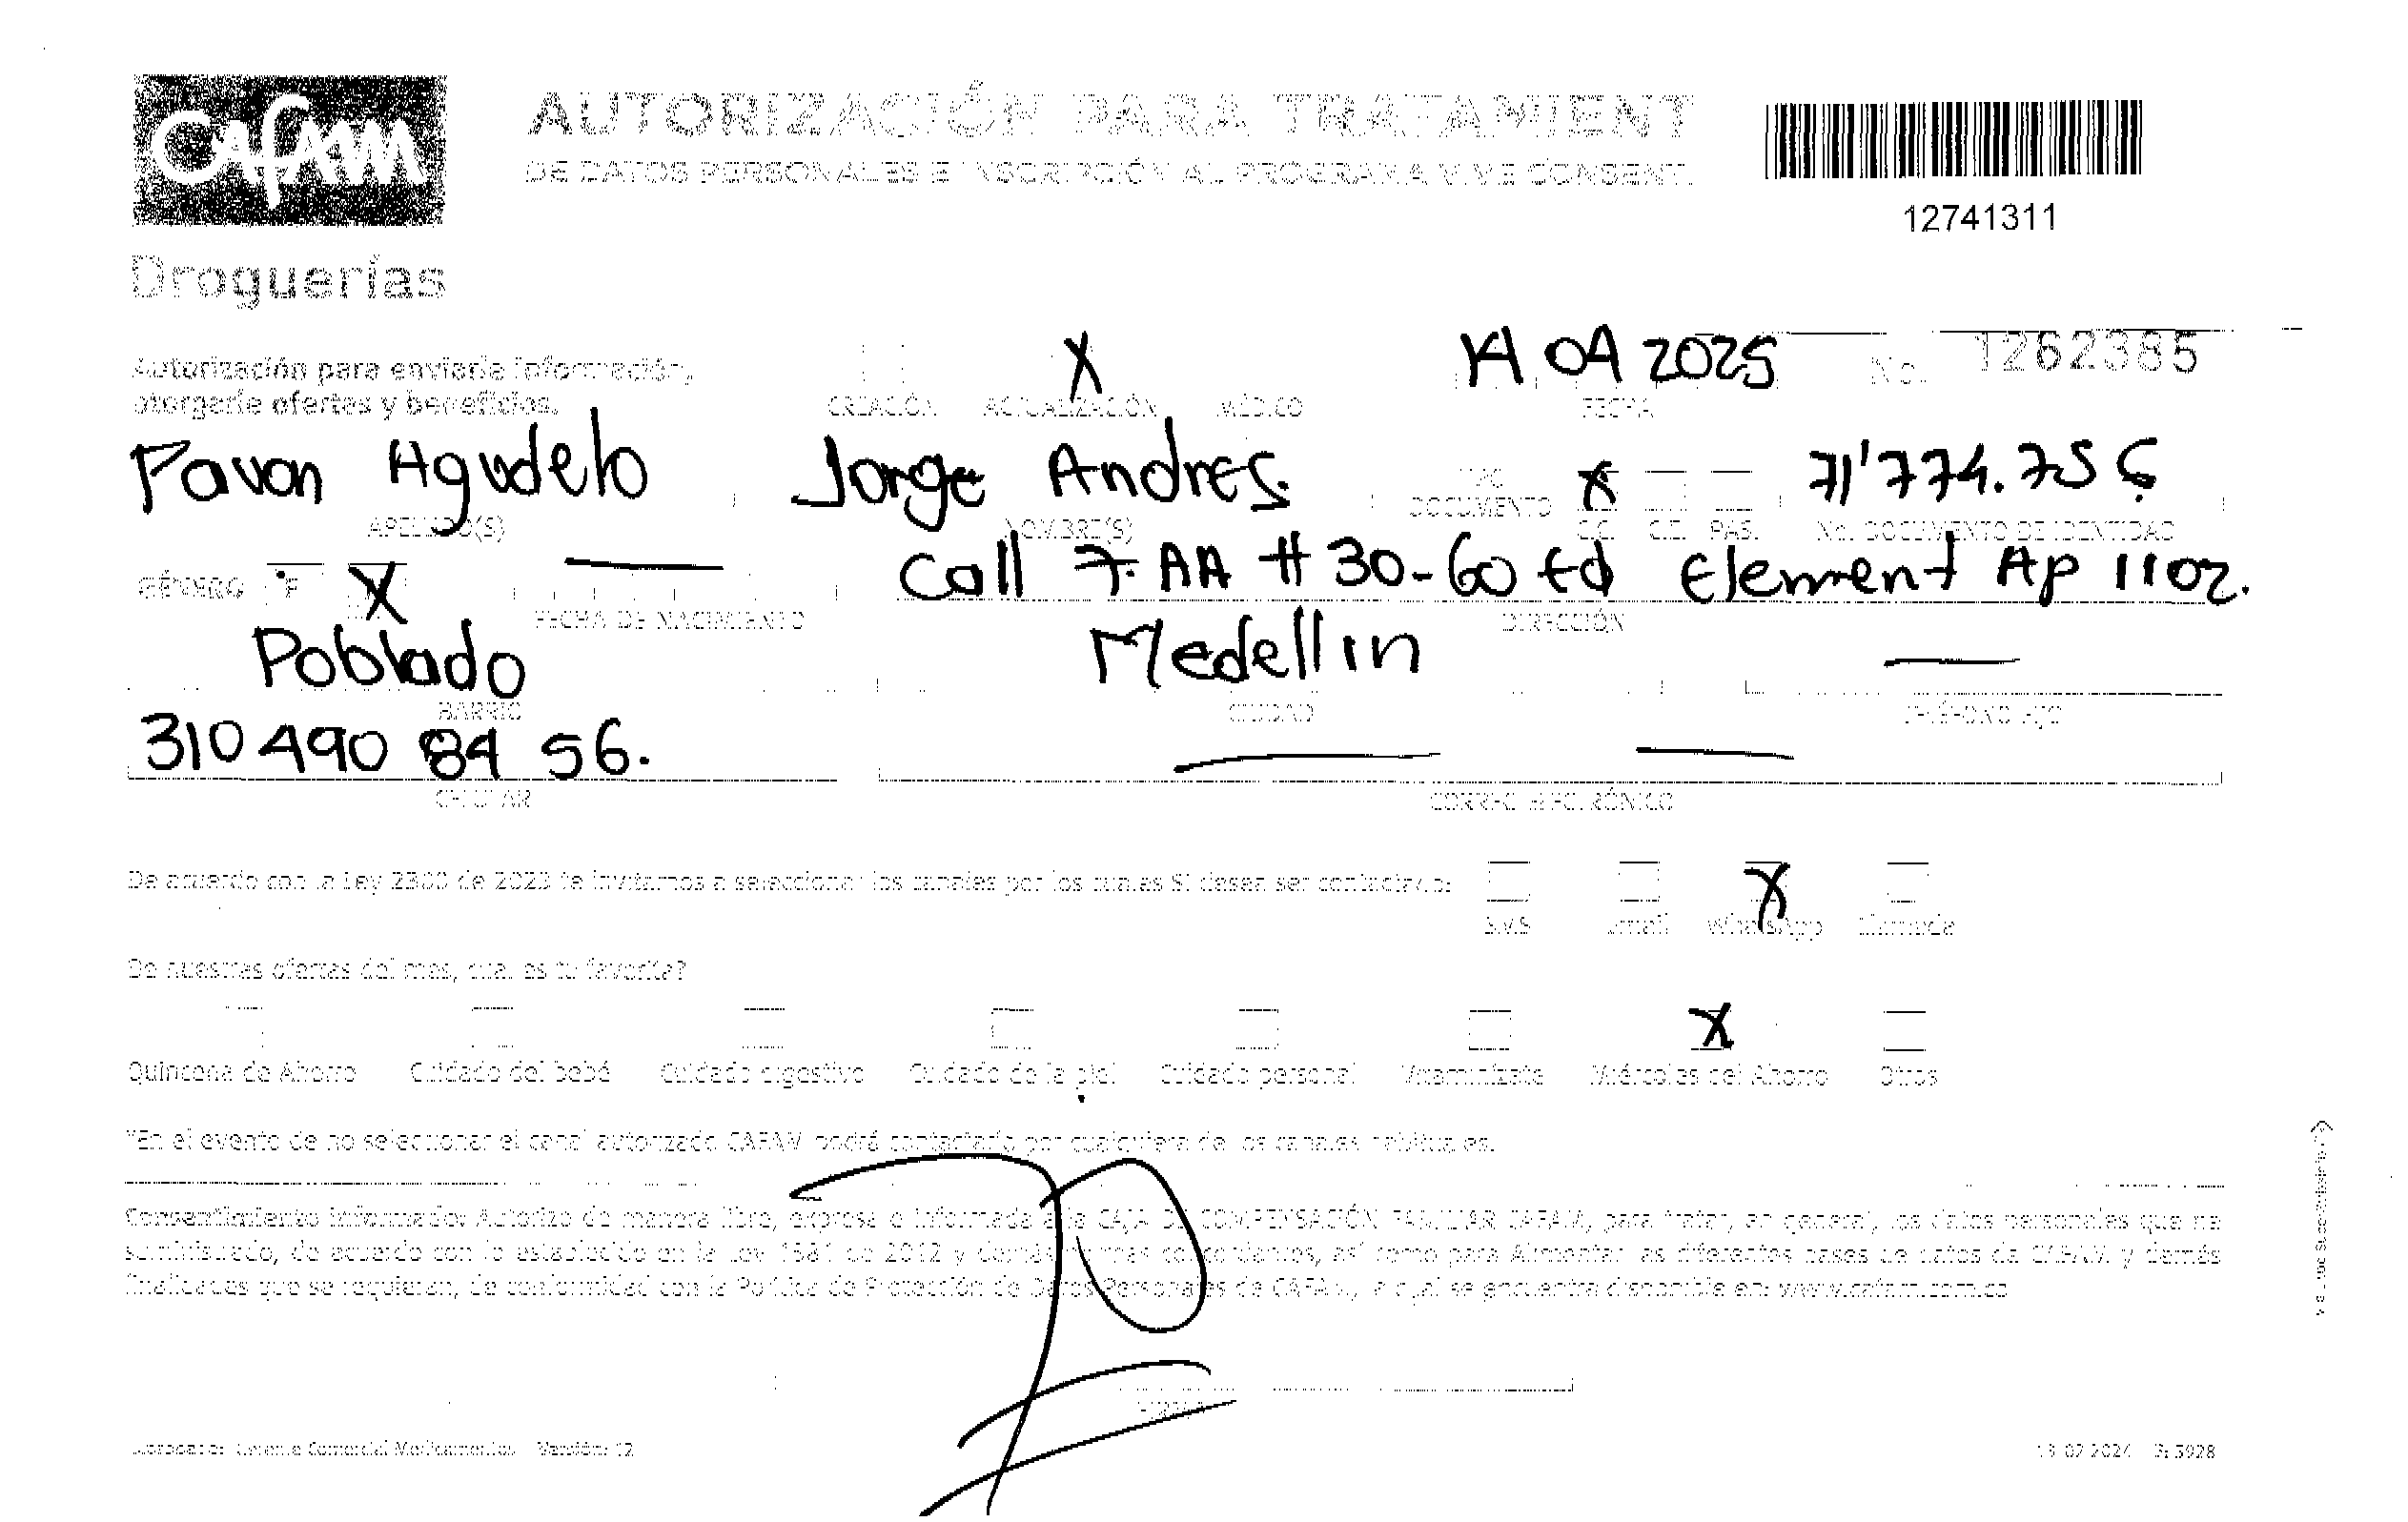 Cafam
AUTORIZACIÓN PARA TRATAMIENT
DE DATOS PERSONALES E INSCRIPCIÓN AL PROGRAMA VIVE CONSENTI
12741311
Droguerías
Autorización para enviarle información,
otorgarle ofertas y beneficios.
X
14 04 2025
No. 1262385
CREACIÓN ACTUALIZACIÓN MÉDICO FECHA
Pavon Agudelo Jorge Andres
DOCUMENTO X 71'774.756
APELLIDO(S) NOMBRE(S) C.C. C.E. PAS. No. DOCUMENTO DE IDENTIDAD
GÉNERO F X Call 7.AA # 30-60 Ed Element Ap 1102.
FECHA DE NACIMIENTO DIRECCIÓN
Poblado Medellin
BARRIO CIUDAD TELÉFONO FIJO
310 490 84 56.
CELULAR CORREO ELECTRÓNICO
De acuerdo con la Ley 2300 de 2023 te invitamos a seleccionar los canales por los cuales SI desea ser contactado: X
SMS Email WhatsApp Llamada
De nuestras ofertas del mes, cual es tu favorita?
X
Quincena de Ahorro Cuidado del bebé Cuidado digestivo Cuidado de la piel Cuidado personal Vitamínizate Miércoles del Ahorro Otros
*En el evento de no seleccionar el canal autorizado CAFAM podrá contactarlo por cualquiera de los canales habituales.
Consentimiento informado: Autorizo de manera libre, expresa e informada a la CAJA DE COMPENSACIÓN FAMILIAR CAFAM, para tratar, en general, los datos personales que he
suministrado, de acuerdo con lo establecido en la Ley 1581 de 2012 y demás normas concordantes, así como para Alimentar las diferentes bases de datos de CAFAM y demás
finalidades que se requieran, de conformidad con la Política de Protección de Datos Personales de CAFAM, la cual se encuentra disponible en: www.cafam.com.co
FIRMA
Gerente Comercial Medicamentos Versión: 12
13 02 2024 F: 3928